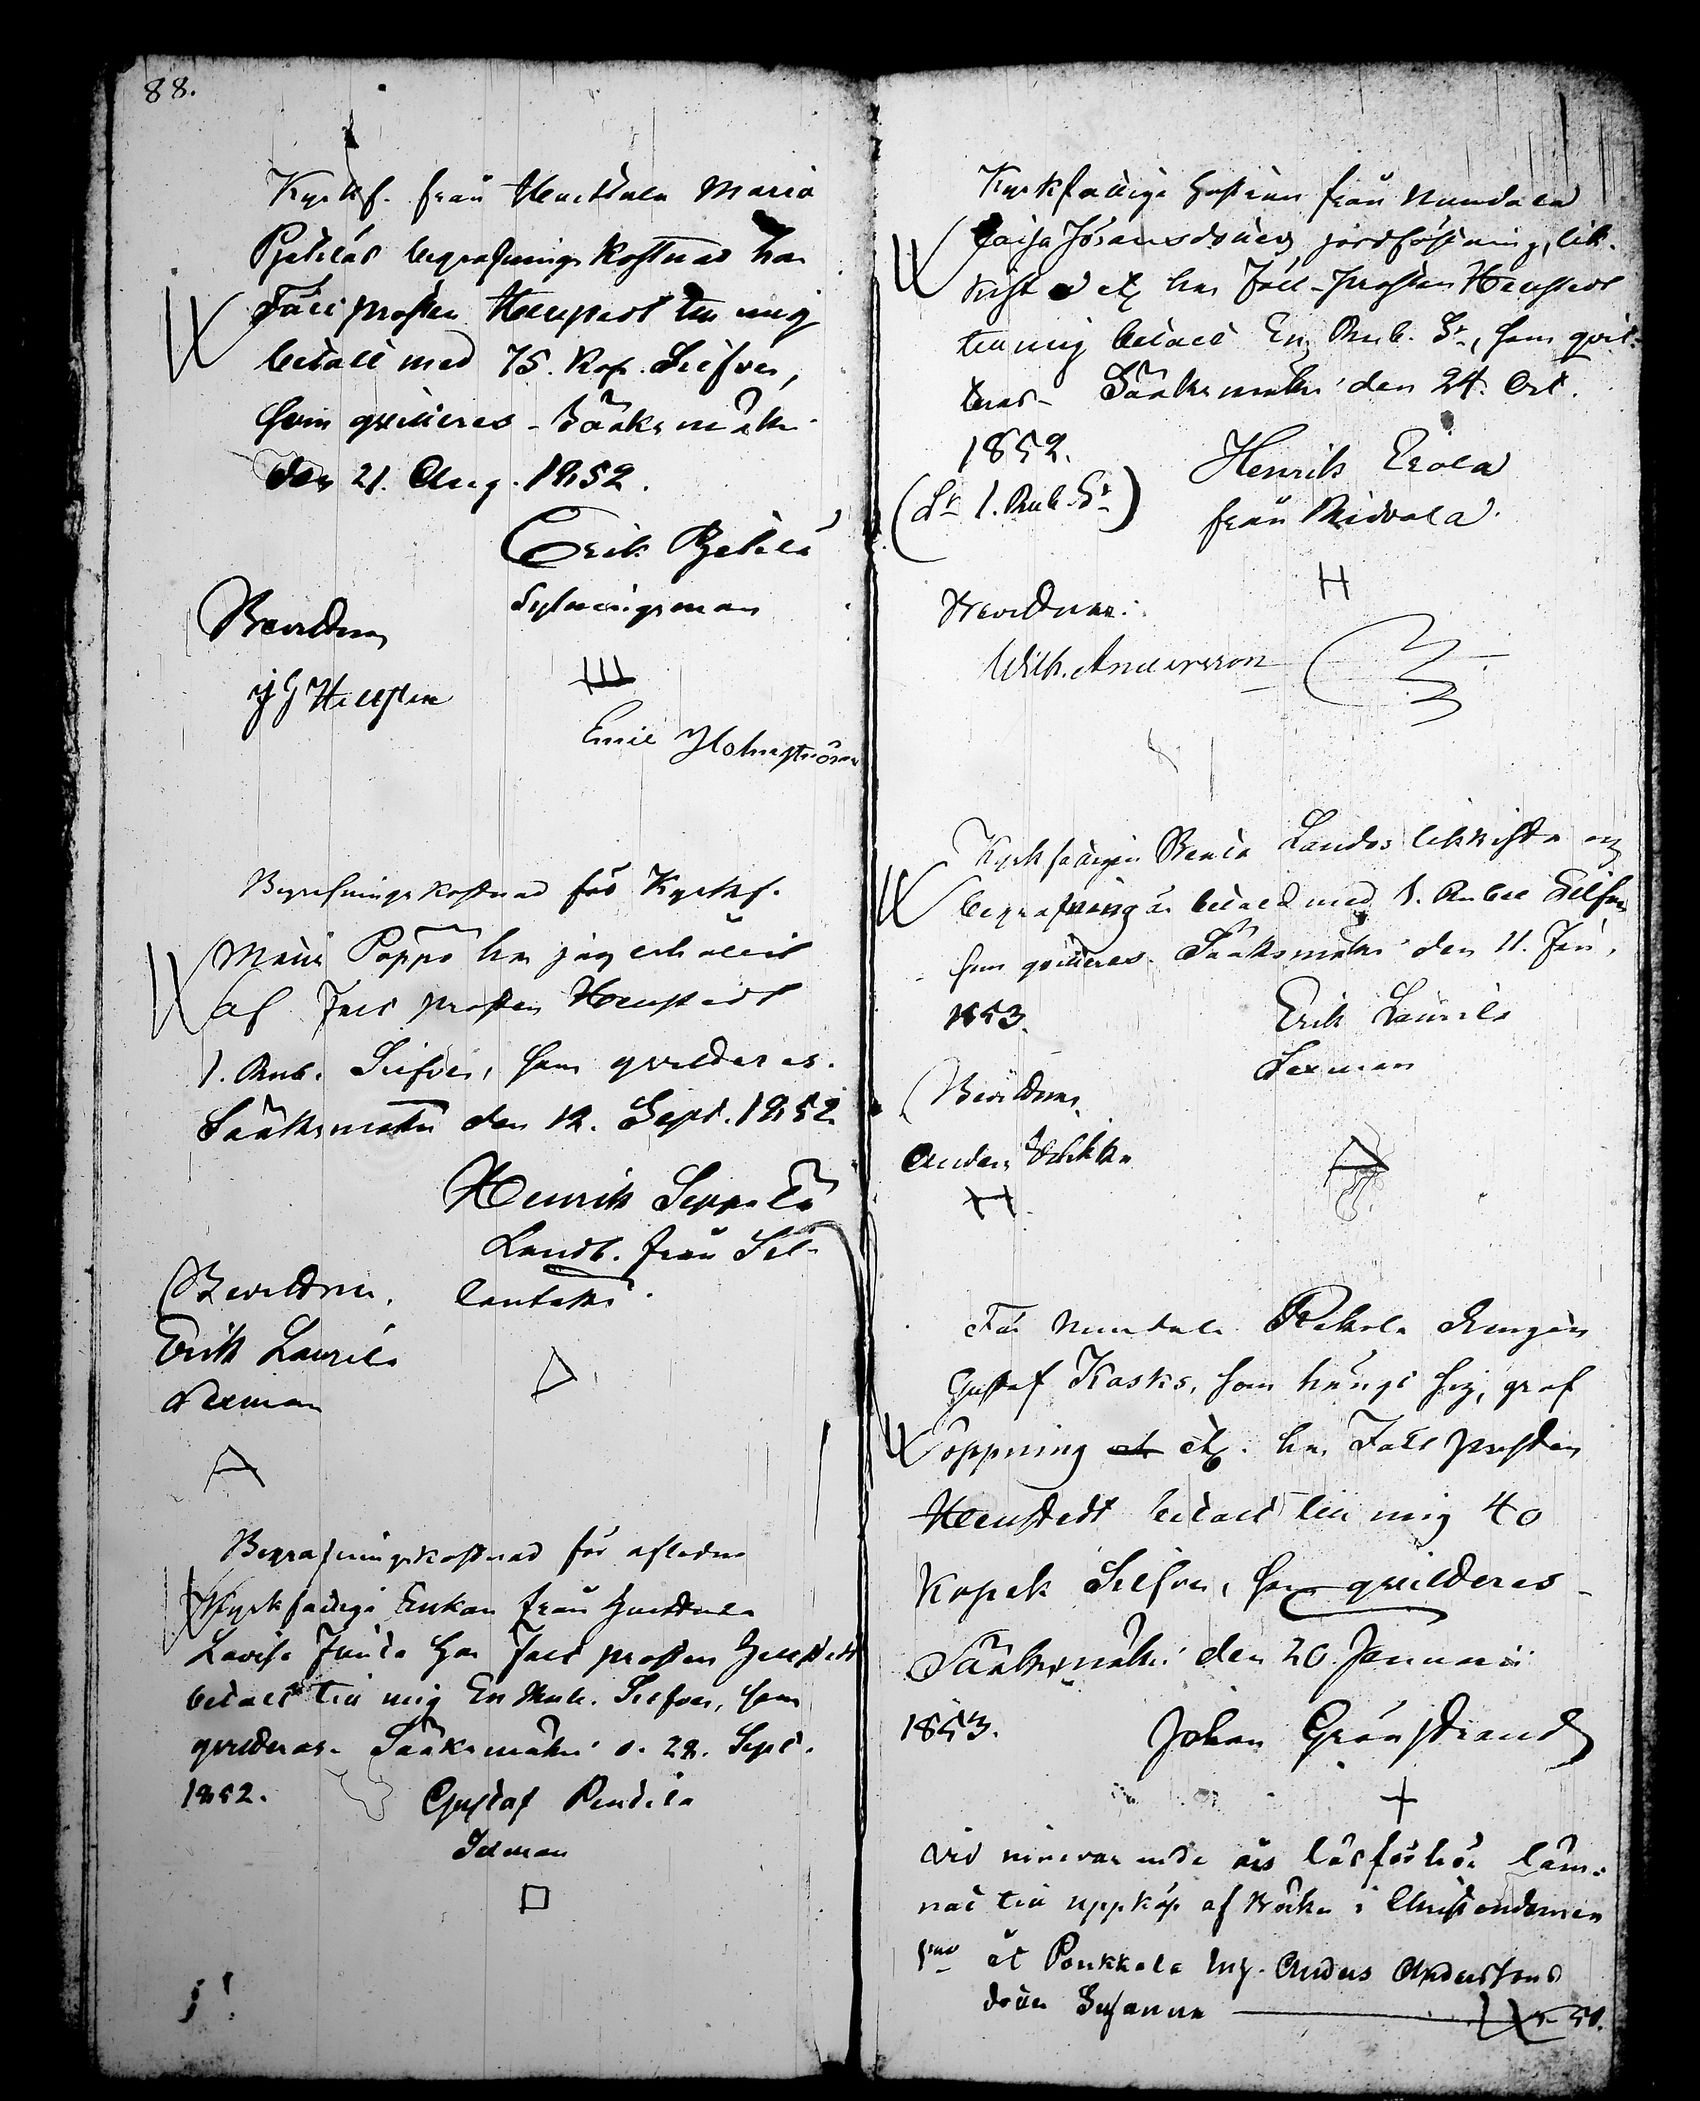 88.
Kyrkf. från Maria
Pjetilás begrafnings kostnad har
Fält prosten Hellstedt till mig
betalt med 75. Kop. Silfver,
som quitteras - Sääksmäki
den 21. Aug. 1852.
Erik Pjetilä
Bevittna
J G Hellsten
Emil Holmström
Begrafningskostnad för Kyrkf.
Maria Pappo har jag erhållit
af Fält prosten Hellstedt
1. Rub. Silfver, som qvitteras.
Sääksmäki den 12. Sept. 1852
Henrik Seppälä
Landb. från
Bevittna.
Erik Laurila
Sexman
Begrafningskostnad för aflidne
Kyrkfattiga Enkan från
Lovisa har Fält prosten Hellstedt
betalt till mig En Rub. Silfver, som
qvitteras. Sääksmäki d. 28. Sept.
1852.
Gustaf Penttilä
Sexman
Kyrkfattige Hustrun från
Caisa Jöransdotters jordfästning, lik-
kista etc har Fält-prosten Hellstedt
till mig betalt En Rub. Sr, som qvit-
teras - Sääksmäki den 24. Oct.
1852.
(Sr 1. Rub. Sr)
Henrik Erola
från Ridvala
H
Bevittnar:
Wilh. Andersson
Kyrkfattigen likkista och
begrafning är betald med 1. Rubel Silfver
som qvitteras. Sääksmäki den 11. Jan.
1853.
Erik Laurila
Sexman
Bevittnar
Anders
För drengen
Gustaf Kasks, som hängt sig, graf
öppning etc. har Fält prosten
Hellstedt betalt till mig 40
Kopek Silfver, som qvitteras -
Sääksmäki den 20. Januarii
1853.
Johan Grönstrand
+
Vid innevarande års läsförhör läm-
nat till uppköp af Böcker i Christendomen
1mo åt Ponkkala Anders Anderssons
dotter Susanna